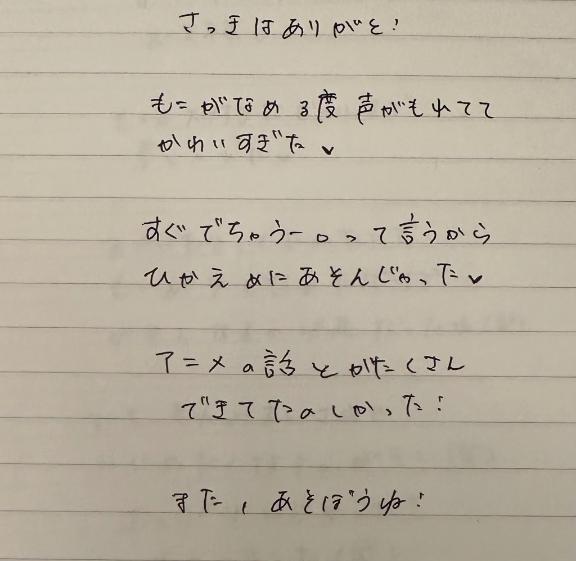 さっきはありがと!
もこがなめる度声がもれてて
かわいすぎた♥
すぐでちゃうー。って言うから
ひかえめにあそんじゃった♥
アニメの話とかたくさん
できてたのしかった!
また、あそぼうね!